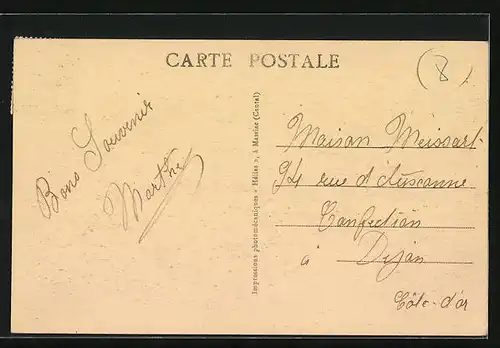 CARTE POSTALE
(8)
Bons Souvenir
Marthe
Impressions photomécaniques « Hélios », à Mauriac (Cantal)
Maison Meissart
94 rue d'Auxonne
Confection
à Dijon
Côte-d'or